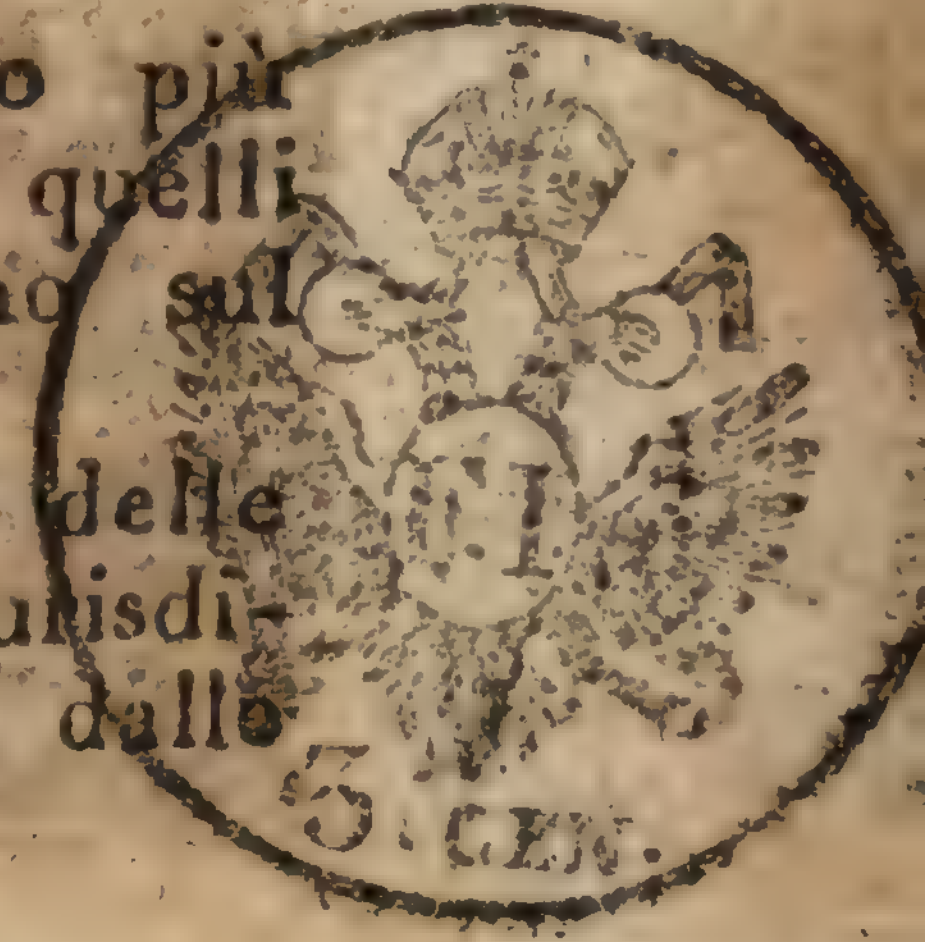 o più
quelli
no sul
delle
urisdi-
dallo
5. CEN.